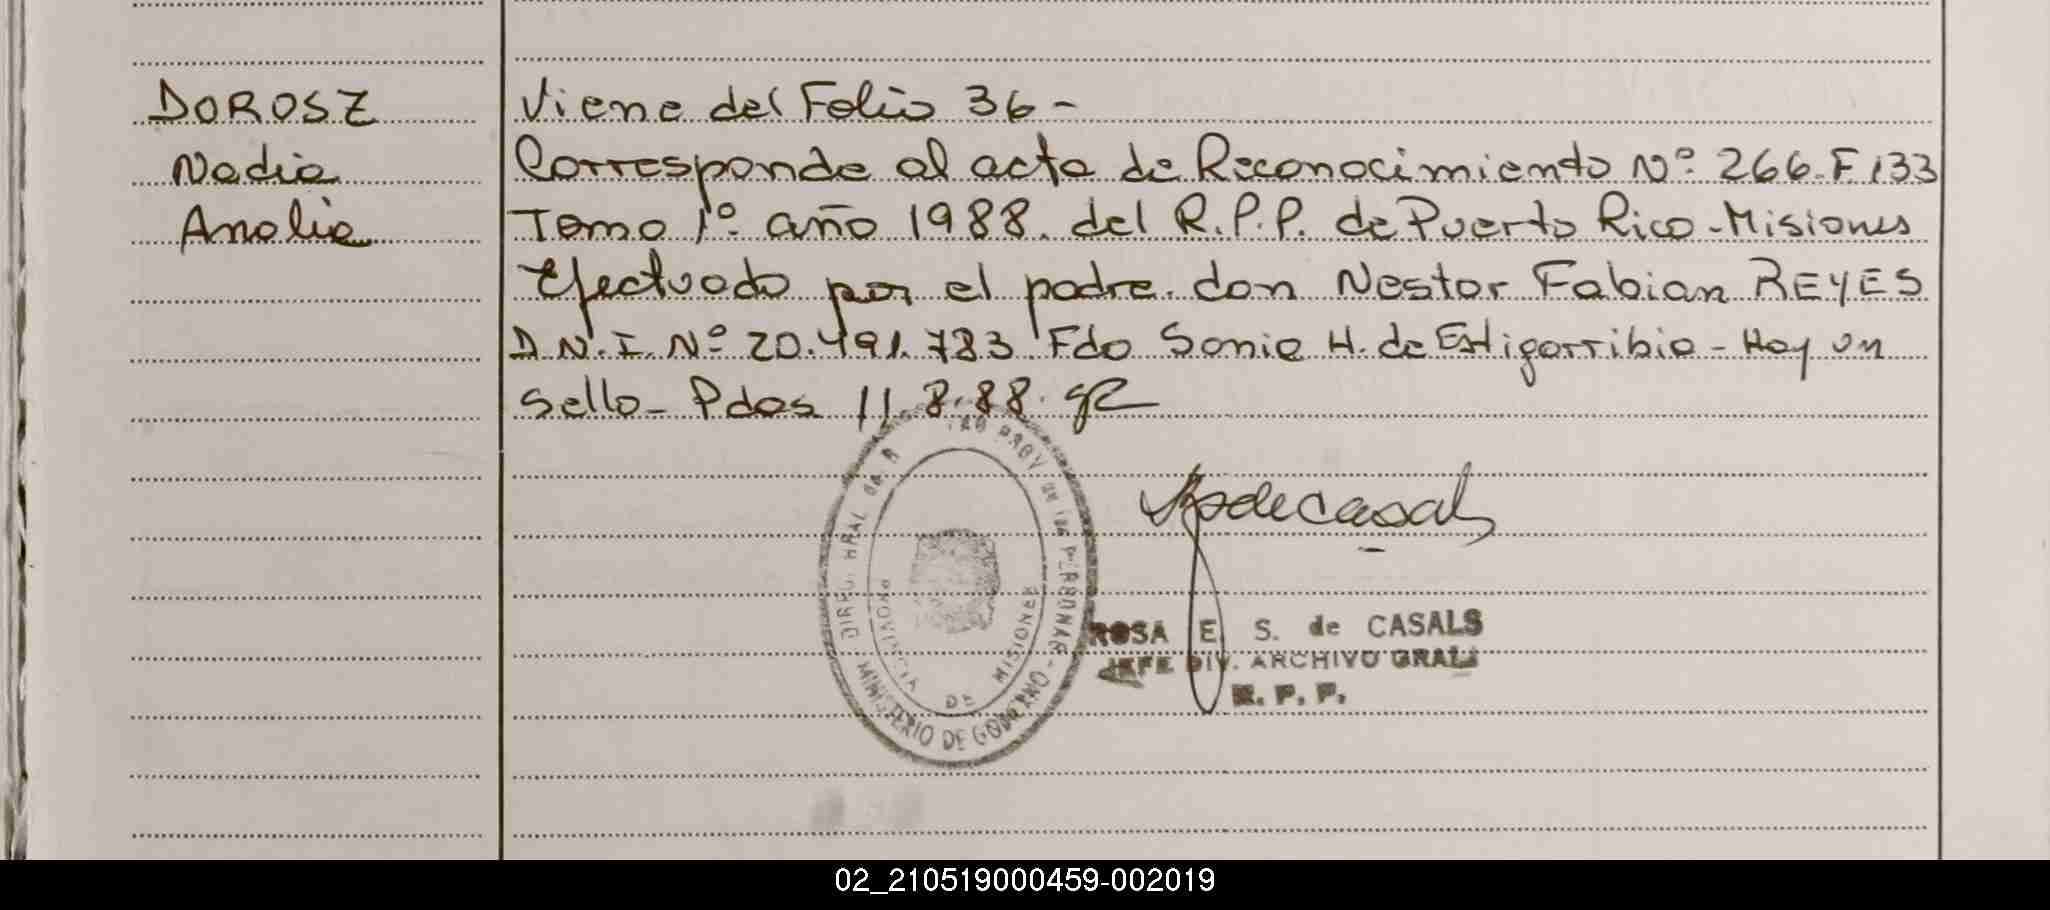 DOROSZ
Nadia
Analia
Viene del Folio 36 -
Corresponde al acta de Reconocimiento Nº 266. F 133
Tomo 1º año 1988. del R.P.P. de Puerto Rico - Misiones
Efectuado por el padre. don Nestor Fabian REYES
D.N.I. Nº 20.491.783 Fdo Sonia H. de Estigarribia - Hay un
Sello - Pdas 11.8.88.
de Casals
ROSA E. S. de CASALS
JEFE DIV. ARCHIVO GRAL.
R. P. P.
PROV de las PERSONAS - MINISTERIO DE GOBIERNO
PROVINCIA DE MISIONES
02_210519000459-002019